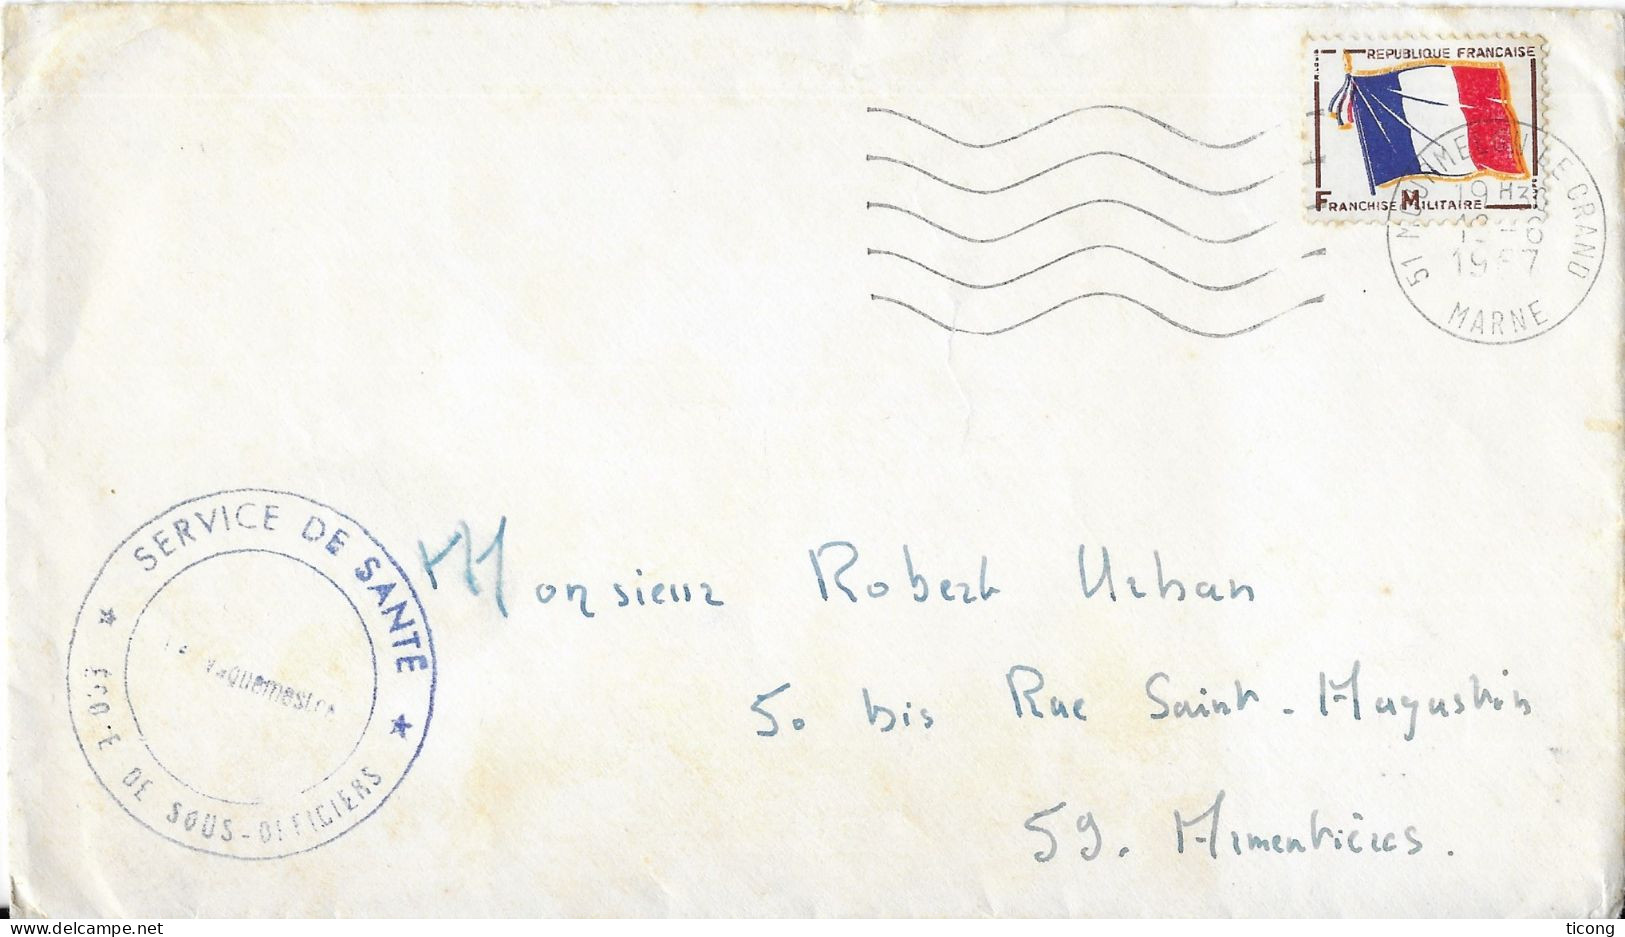 REPUBLIQUE FRANCAISE
FRANCHISE MILITAIRE
51 MOURMELON LE GRAND
19H
1967
MARNE
SERVICE DE SANTE
Vaguemestre
DE SOUS-OFFICIERS
Monsieur Robert Urban
50 bis Rue Saint-Augustin
59. Armentières.
www.delcampe.net
ticong